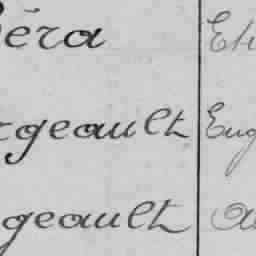 éra Eti
rgeault Eug
geault Au